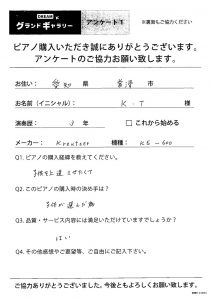 DREAM K
グランドギャラリー アンケート1 ※裏面もご協力ください
ピアノ購入いただき誠にありがとうございます。
アンケートのご協力お願い致します。
お住い： 愛知 県 市
お名前（イニシャル）： K・T 様
演奏歴： 3 年 □ これから始める
メーカー： Kreutzer 機種： KE-600
Q1. ピアノの購入経緯を教えてください。
子供を上達させたくて
Q2. このピアノの購入時の決め手は？
子供が選んだ為
Q3. 品質・サービス内容には満足いただけていますでしょうか？
はい
Q4. その他感想やご要望等、ご自由にご記入下さい。
ご協力ありがとうございました。今後ともよろしくお願い致します。